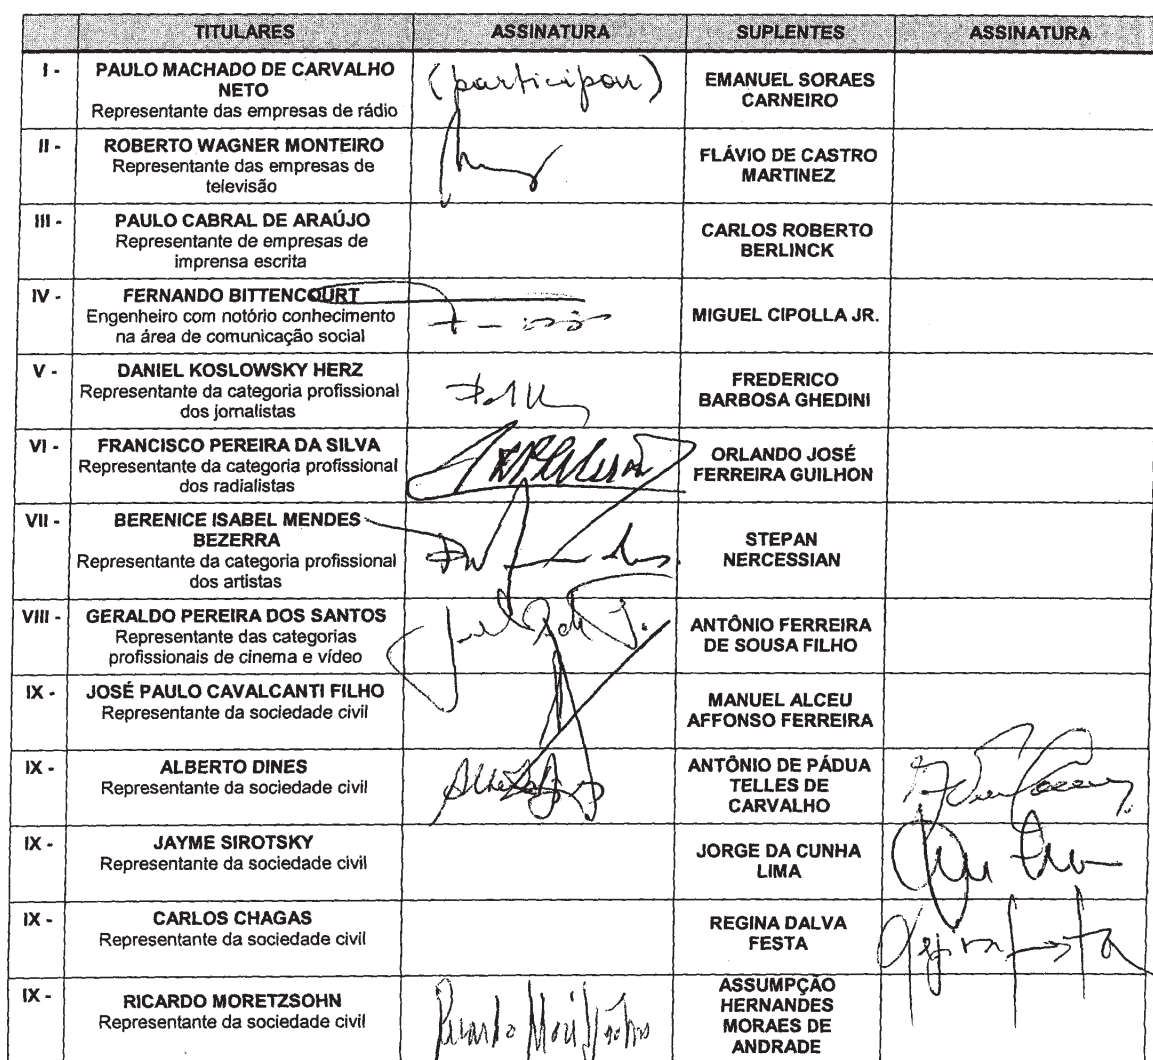 TITULARES ASSINATURA SUPLENTES ASSINATURA
I - PAULO MACHADO DE CARVALHO
NETO
Representante das empresas de rádio
(participou)
EMANUEL SORAES
CARNEIRO
II - ROBERTO WAGNER MONTEIRO
Representante das empresas de
televisão
FLÁVIO DE CASTRO
MARTINEZ
III - PAULO CABRAL DE ARAÚJO
Representante de empresas de
imprensa escrita
CARLOS ROBERTO
BERLINCK
IV - FERNANDO BITTENCOURT
Engenheiro com notório conhecimento
na área de comunicação social
MIGUEL CIPOLLA JR.
V - DANIEL KOSLOWSKY HERZ
Representante da categoria profissional
dos jornalistas
FREDERICO
BARBOSA GHEDINI
VI - FRANCISCO PEREIRA DA SILVA
Representante da categoria profissional
dos radialistas
ORLANDO JOSÉ
FERREIRA GUILHON
VII - BERENICE ISABEL MENDES
BEZERRA
Representante da categoria profissional
dos artistas
STEPAN
NERCESSIAN
VIII - GERALDO PEREIRA DOS SANTOS
Representante das categorias
profissionais de cinema e vídeo
ANTÔNIO FERREIRA
DE SOUSA FILHO
IX - JOSÉ PAULO CAVALCANTI FILHO
Representante da sociedade civil
MANUEL ALCEU
AFFONSO FERREIRA
IX - ALBERTO DINES
Representante da sociedade civil
ANTÔNIO DE PÁDUA
TELLES DE
CARVALHO
IX - JAYME SIROTSKY
Representante da sociedade civil
JORGE DA CUNHA
LIMA
IX - CARLOS CHAGAS
Representante da sociedade civil
REGINA DALVA
FESTA
IX - RICARDO MORETZSOHN
Representante da sociedade civil
ASSUMPÇÃO
HERNANDES
MORAES DE
ANDRADE